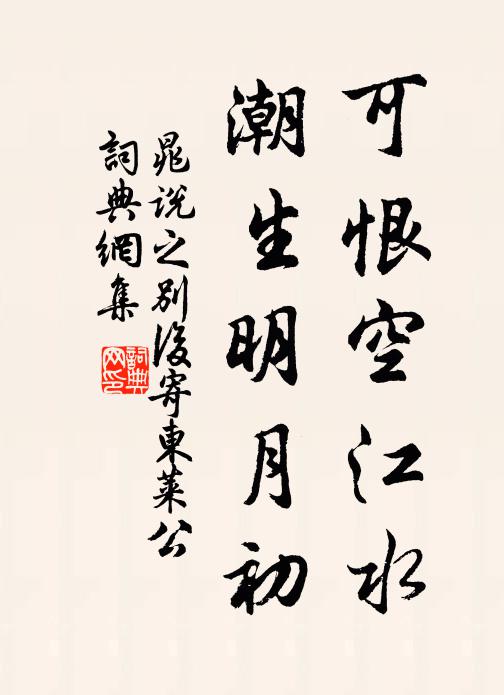 可恨空江水
潮生明月初
晁說之別後寄東萊公
詞典網集
詞典
网印